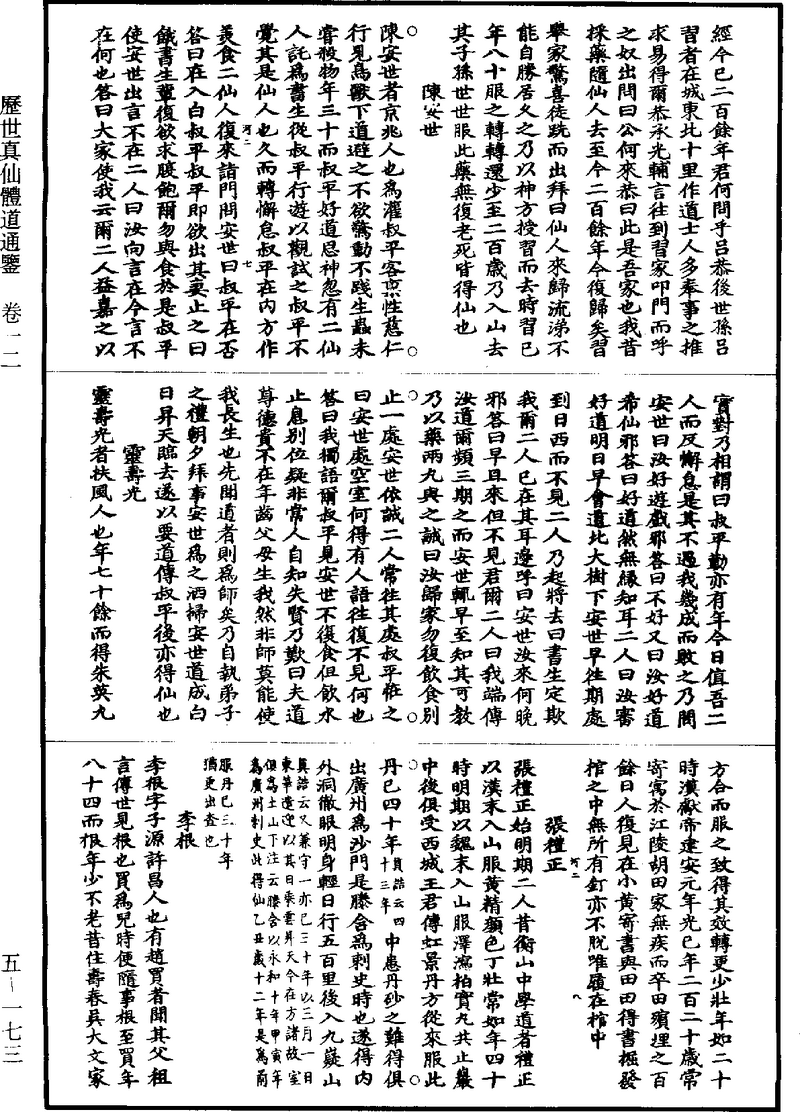 歷世真仙體道通鑒　卷一二
五—一七三
經今已二百餘年君何問乎呂恭後世孫呂
習者在城東北十里作道士人多奉事之推
求易得爾恭承光輔言往到習家叩門而呼
之奴出問曰公何來恭曰此是吾家也我昔
採藥隨仙人去至今二百餘年今復歸矣習
舉家驚喜徒跣而出拜曰仙人來歸流涕不
能自勝居久之乃以神方授習而去時習已
年八十服之轉轉還少至二百歲乃入山去
其子孫世世服此藥無復老死皆得仙也
陳安世
陳安世者京兆人也為灌叔平客稟性慈仁
行見鳥獸下道避之不欲驚動不踐生蟲未
嘗殺物年三十而叔平好道思神忽有二仙
人託為書生從叔平行遊以觀試之叔平不
覺其是仙人也久而轉懈怠叔平在內方作
美食二仙人復來詣門問安世曰叔平在否
答曰在入白叔平叔平即欲出其妻止之曰
餓書生輩復欲求腹飽爾勿與食於是叔平
使安世出言不在二人曰汝向言在今言不
在何也答曰大家使我云爾二人益嘉之以
實對乃相謂曰叔平勤亦有年今日值吾二
人而反懈怠是其不遇我幾成而敗之乃問
安世曰汝好遊戲邪答曰不好又曰汝好道
希仙邪答曰好道然無緣知耳二人曰汝審
好道明日早會道北大樹下安世早往期處
到日西而不見二人乃起將去曰書生定欺
我爾二人已在其耳邊呼曰安世汝來何晚
邪答曰早且來但不見君爾二人曰我端傳
汝道爾頻三期之而安世輒早至知其可教
乃以藥兩丸與之誡曰汝歸家勿復飲食別
止一處安世依誡二人常往其處叔平怪之
曰安世處空室何得有人語往復不見何也
答曰我獨語爾叔平見安世不復食但飲水
止息別位疑非常人自知失賢乃歎曰夫道
尊德貴不在年齒父母生我然非師莫能使
我長生也先聞道者則為師矣乃自執弟子
之禮朝夕拜事安世為之洒掃安世道成白
日昇天臨去遂以要道傳叔平後亦得仙也
靈壽光
靈壽光者扶風人也年七十餘而得朱英丸
方合而服之致得其效轉更少壯年如二十
時漢獻帝建安元年光已年二百二十歲常
寄寓於江陵胡田家無疾而卒田殯埋之百
餘日人復見在小黃寄書與田田得書掘發
棺之中無所有釘亦不脫唯履在棺中
張禮正
張禮正始明期二人昔衡山中學道者禮正
以漢末入山服黃精顏色丁壯常如年四十
時明期以魏末入山服澤瀉柏實丸共止巖
中後俱受西城王君傳虹景丹方從來服此
丹已四十年真誥云四十三年中患丹砂之難得俱
出廣州為沙門是滕含為刺史時也遂得內
外洞徹眼明身輕日行五百里後入九嶷山
真誥云又兼守一亦已三十年以三月一日
東華遣迎以其日乘雲昇天今在方諸故室
俱為上山下注云滕含以永和十年甲寅年
為廣州刺史此得仙乙丑歲十二年是為前
服丹已三十年
猶更出查也
李根
李根字子源許昌人也有趙買者聞其父祖
言傳世見根也買為兒時便隨事根至買年
八十四而根年少不老昔住壽春吳大文家